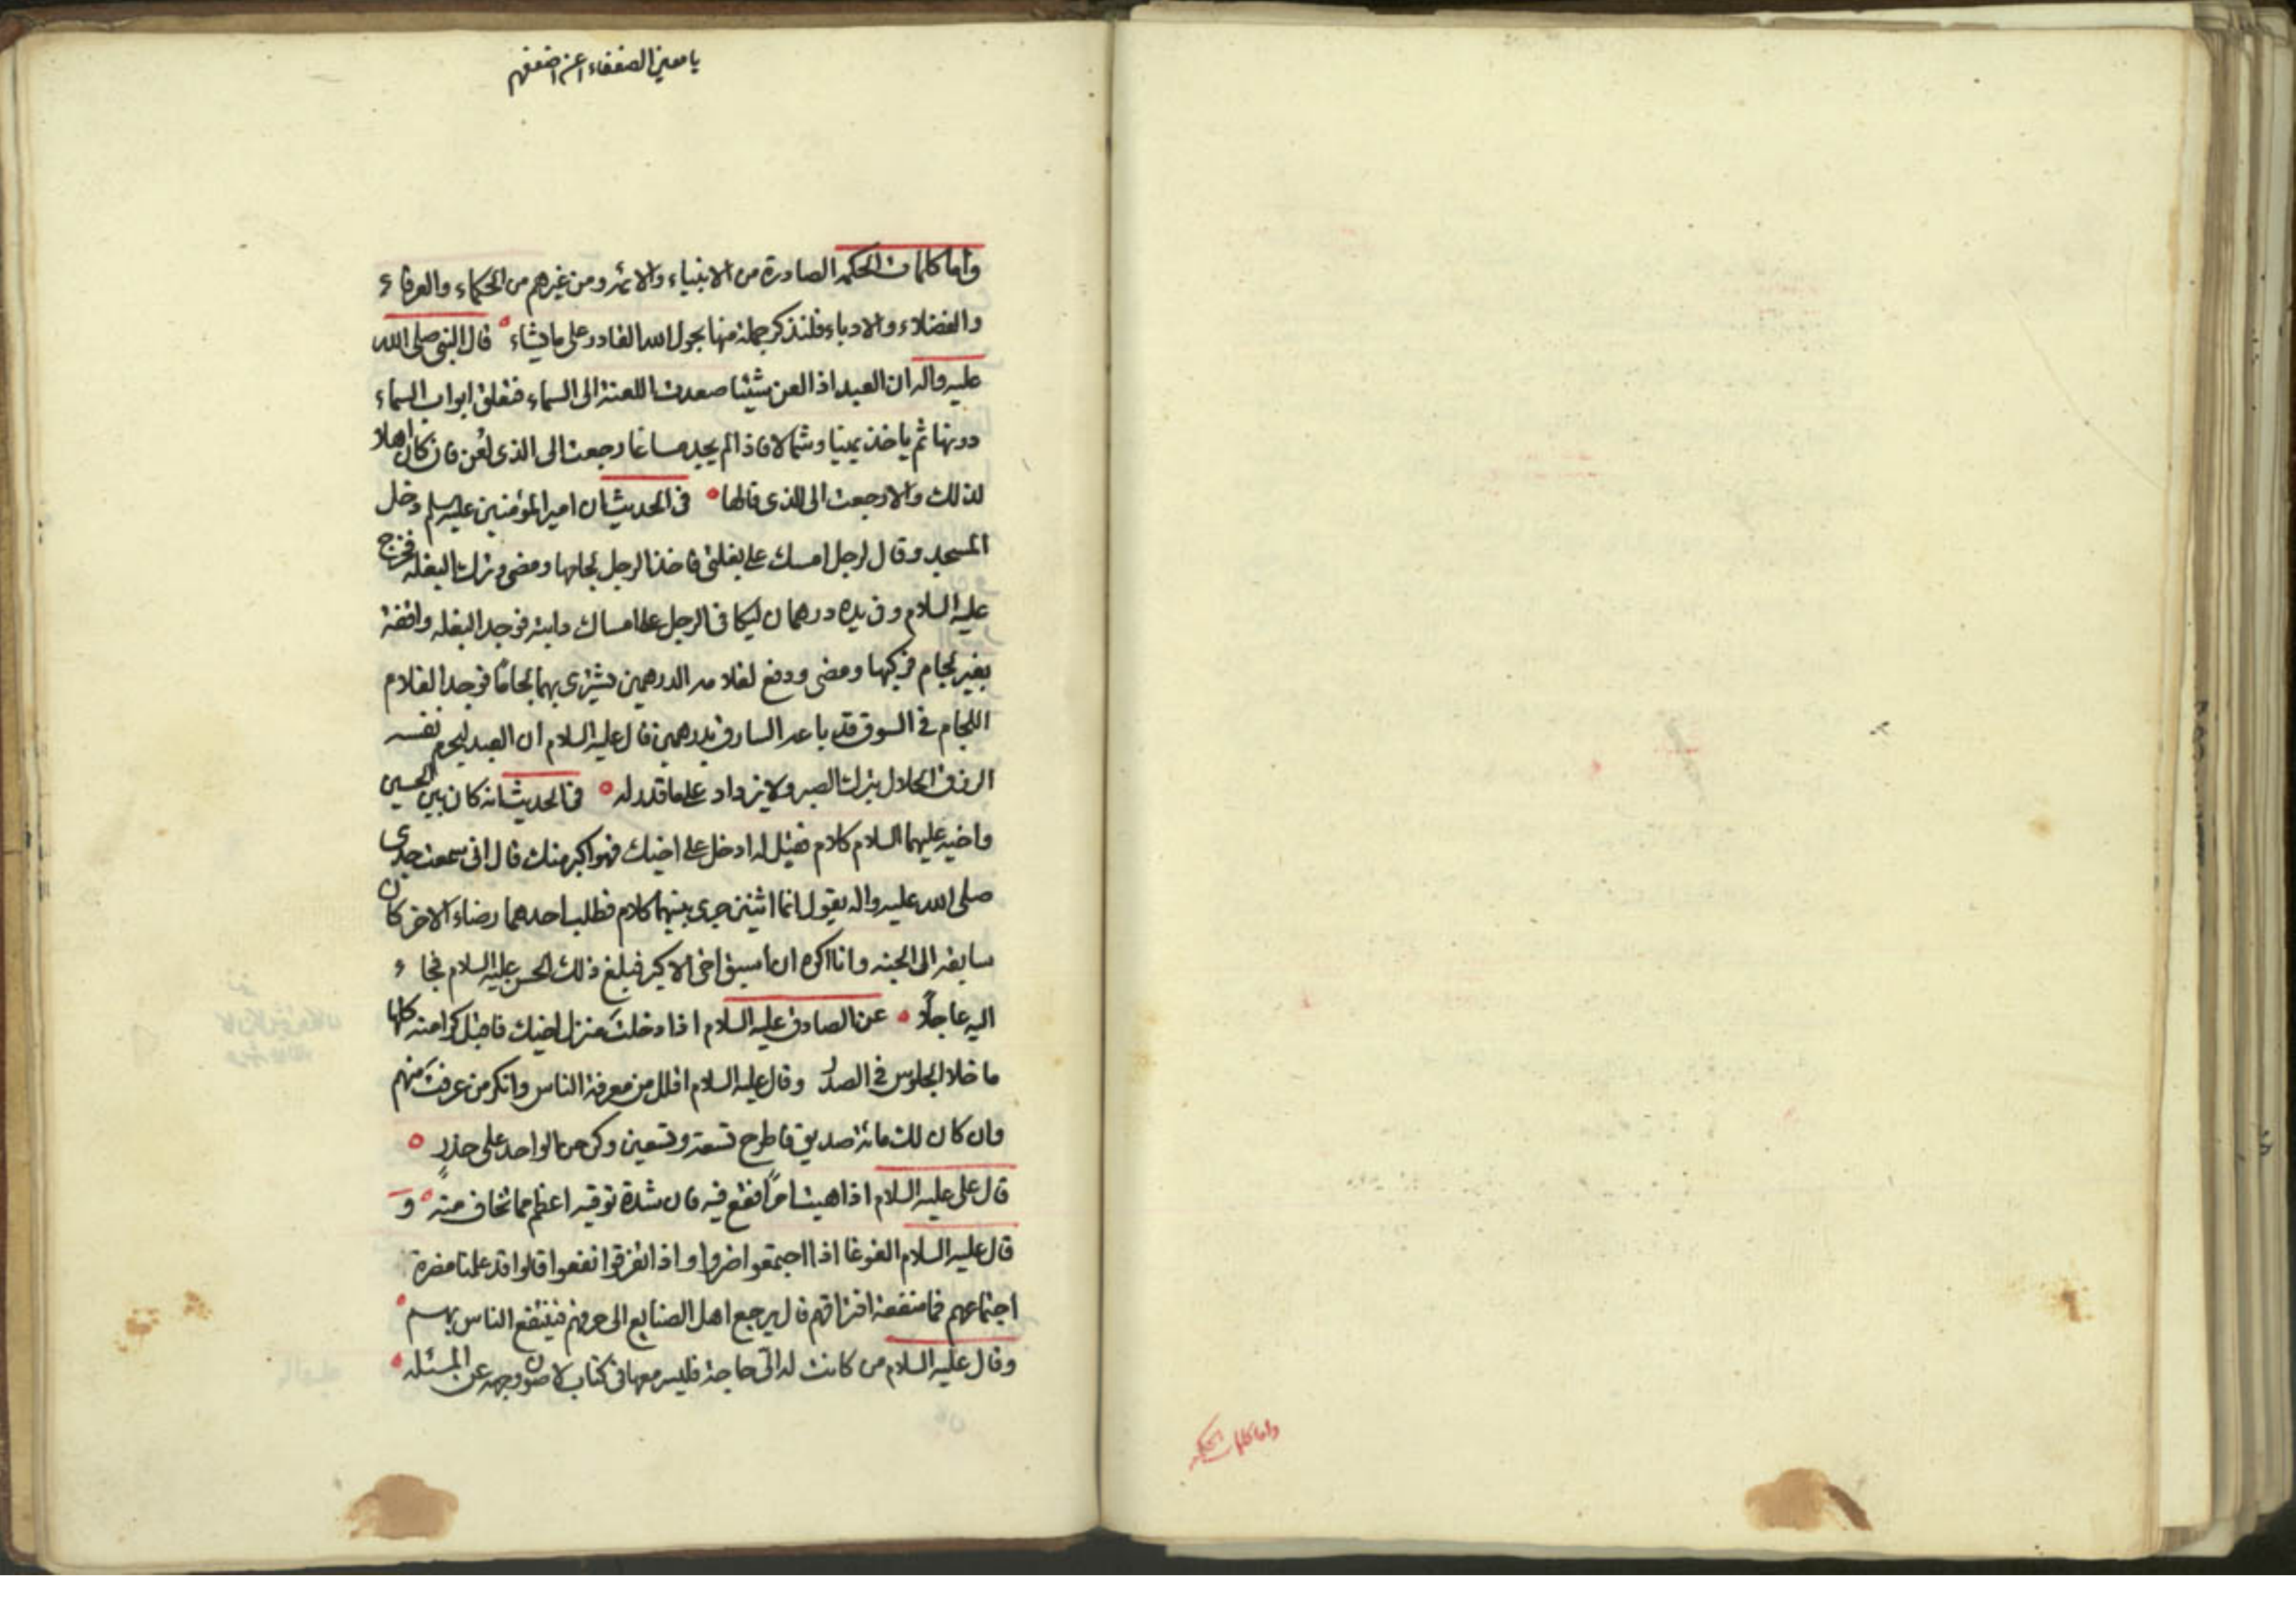 يا معين الضعفاء اعن اضعفهم
واما كلمات الحكمه الصادرة من الانبياء والائمه ومن غيرهم من الحكماء والعرفاء
والفضلاء والادباء فلنذكر جملة منها بحول الله القادر على ما يشاء قال النبى صلى الله
عليه واله ان العبد اذا لعن شيئا صعدت اللعنة الى السماء فتغلق ابواب السماء
دونها ثم ياخذ يمينا وشمالا فاذا لم يجد مساغا رجعت الى الذى لعن فان كان اهلا
لذلك والا رجعت الى الذى قالها فى الحديث ان امير المؤمنين عليه السلم دخل
المسجد وقال لرجل امسك على بغلتى فاخذ الرجل لجامها ومضى وترك البغله فخرج
عليه السلام وفى يده درهمان ليكافى الرجل على امساك دابته فوجد البغله واقفة
بغير لجام فركبها ومضى ودفع لغلامه الدرهمين يشترى بهما لجاما فوجد الغلام
اللجام فى السوق قد باعه السارق بدرهمين فقال عليه السلام ان العبد ليحرم نفسه
الرزق الحلال بترك الصبر ولا يزداد على ما قدر له فى الحديث انه كان بين الحسين
واخيه عليهما السلام كلام فقيل له ادخل على اخيك فهو اكبر منك قال انى سمعت جدى
صلى الله عليه واله يقول انما اثنين جرى بينهما كلام فطلب احدهما رضاء الاخر كان
سابقه الى الجنه وانا اكره ان أسبق اخى الاكبر فبلغ ذلك الحسن عليه السلام فجاء
اليه عاجلًا عن الصادق عليه السلام اذا دخلت منزل اخيك فاقبل كرامته كلها
ما خلا الجلوس فى الصدر وقال عليه السلام اقلل من معرفة الناس وانكر من عرفت منهم
وان كان لك مائة صديق فاطرح تسعة وتسعين وكن من الواحد على حذرٍ
قال على عليه السلام اذا هبت امرًا فقع فيه فان شدة توقيه اعظم مما تخاف منه و
قال عليه السلام الغوغا اذا اجتمعوا ضروا واذا تفرقوا نفعوا قالوا قد علمنا مضرة
اجتماعهم فما منفعة افتراقهم قال يرجع اهل الصنايع الى حرفهم فينتفع الناس بهم
وقال عليه السلام من كانت له الىّ حاجة فليرفعها فى كتاب لاصون وجهه عن المسئله
واما كلمات الحكمه